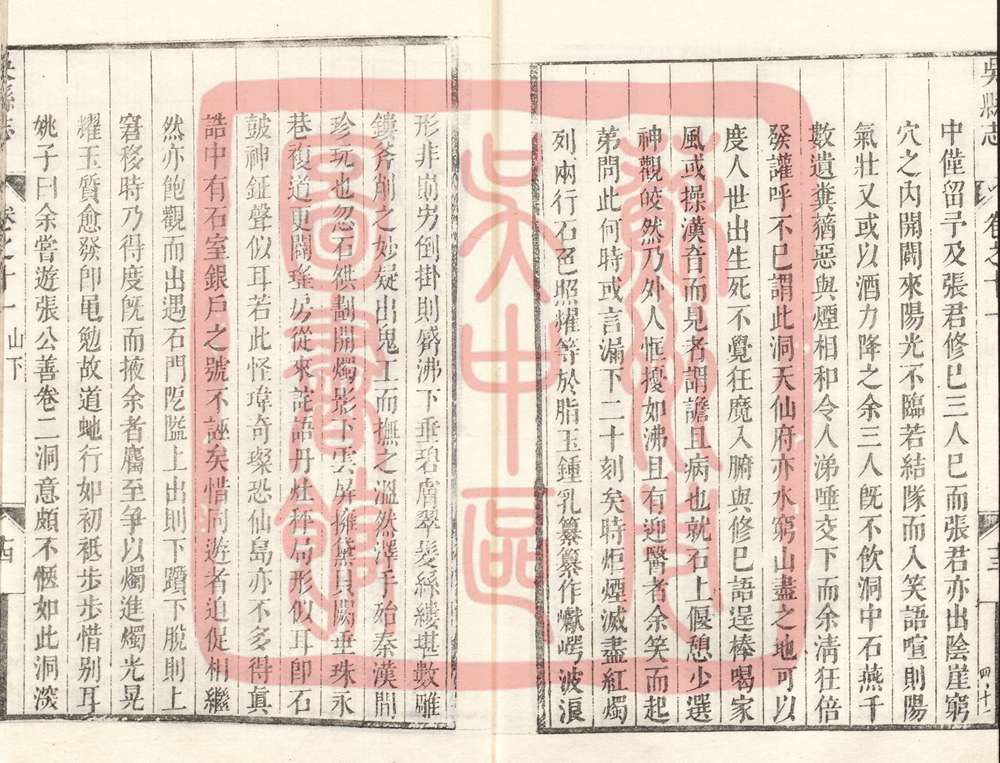 吳縣志
卷之十一
中僅留予及張君修巳三人巳而張君亦出陰崖窮
穴之内開闢來陽光不臨若結隊而入笑語喧則陽
氣壯又或以酒力降之余三人旣不飲洞中石燕千
數遺糞蕕惡與煙相和令人涕唾交下而余清狂倍
發讙呼不巳謂此洞天仙府亦水窮山盡之地可以
度人世出生死不覺狂魔入腑與修巳語逞棒喝家
風或操漢音而見者謂譫且病也就石上偃憩少選
神觀皎然乃外人恇擾如沸且有迎醫者余笑而起
第問此何時或言漏下二十刻矣時炬煙滅盡紅燭
列兩行石色照耀等於脂玉鍾乳纂纂作巘崿波浪
形非崩屴倒掛則觱沸下垂碧膚翠髮絲縷堪數雕
鏤斧削之妙疑出鬼工而撫之溫然澤手殆秦漢間
珍玩也忽石供劃開燭影下雲屏擁黛貝闕垂珠永
巷複道更闢瑤房從來詫語丹灶秤局形似耳卽石
皷神鉦聲似耳若此怪瑋奇璨恐仙島亦不多得真
誥中有石室銀戶之號不誣矣惜同遊者迫促相繼
然亦飽觀而出遇石門阨隘上出則下躓下脫則上
窘移時乃得度旣而掖余者麕至爭以燭進燭光晃
耀玉質愈發卽黽勉故道虵行如初祇步步惜别耳
姚子曰余嘗遊張公善卷二洞意頗不愜如此洞深
吳縣志
卷之十一
山下
蘇州市
吳中區
圖書館